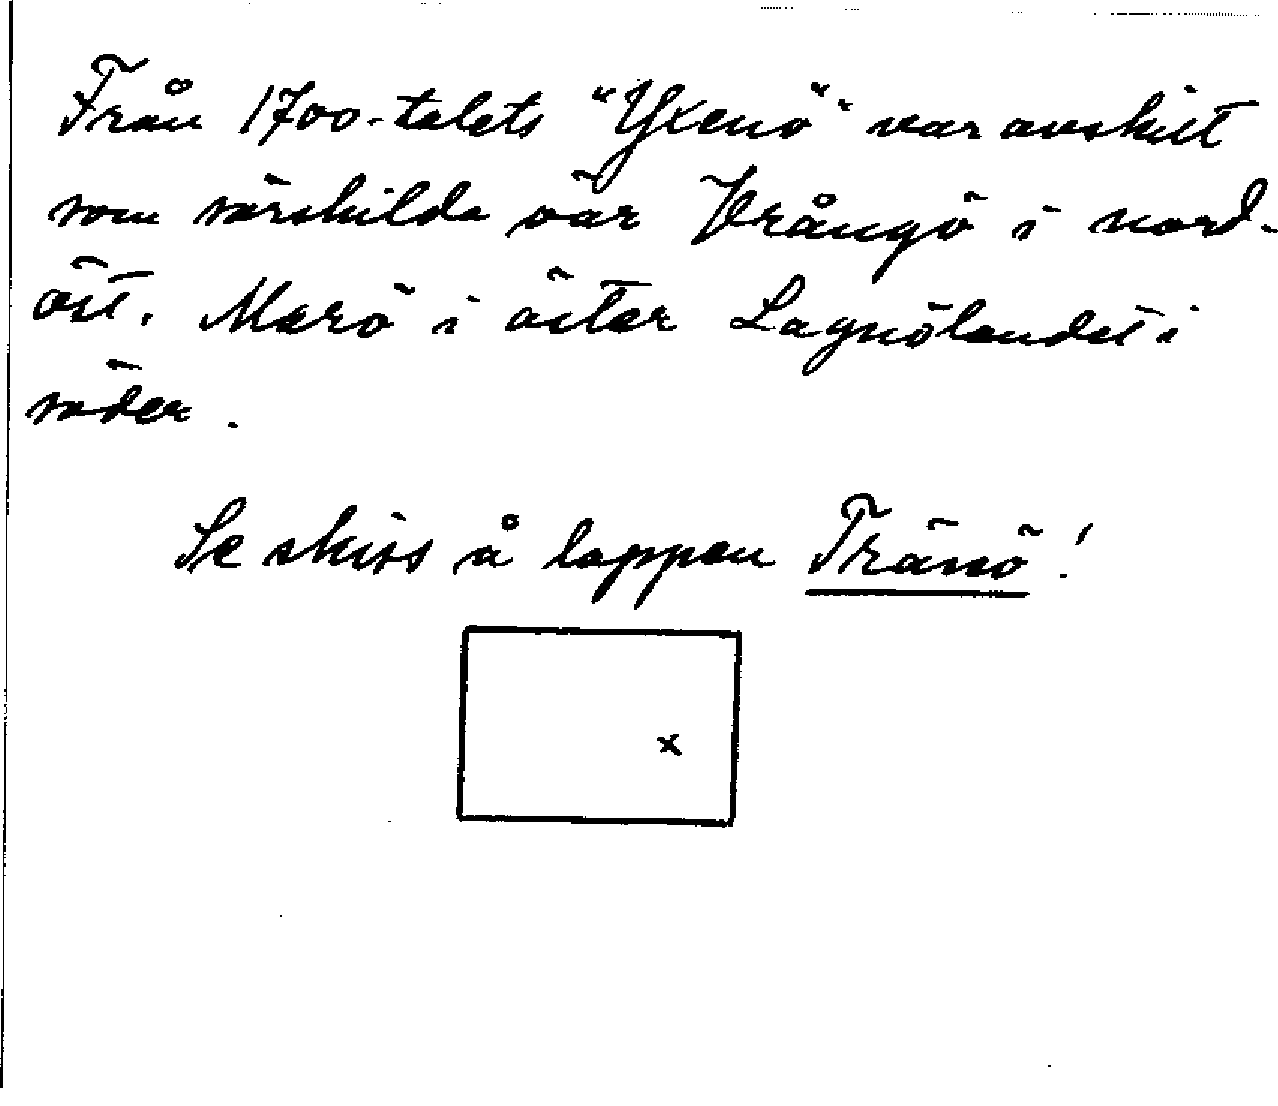 Från 1700-talets "Yxenö" var avskilt
som särskilda öar Vrångö i nord-
öst. Marö i öster Lagnölandet i
söder.
Se skiss å lappen Tränö!
x